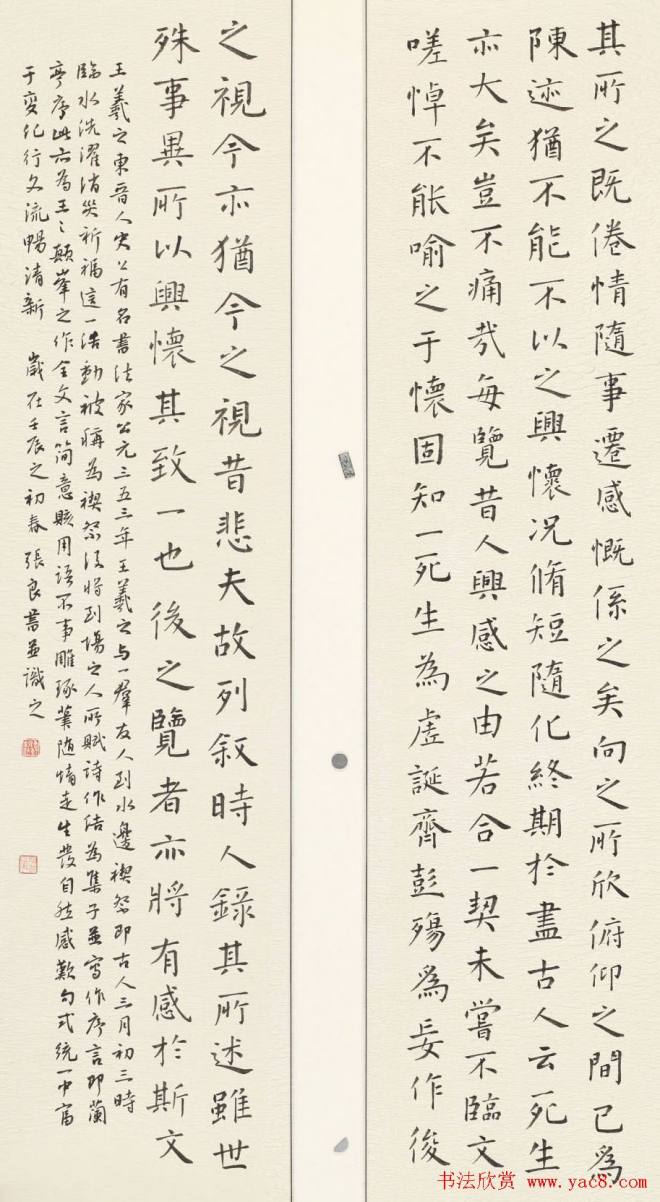 其所之既倦情隨事遷感慨係之矣向之所欣俯仰之間已為
陳迹猶不能不以之興懷况脩短隨化終期於盡古人云死生
亦大矣豈不痛哉每覽昔人興感之由若合一契未嘗不臨文
嗟悼不能喻之于懷固知一死生為虛誕齊彭殤為妄作後
之視今亦猶今之視昔悲夫故列叙時人錄其所述雖世
殊事異所以興懷其致一也後之覽者亦將有感於斯文
王羲之東晉人史上有名書法家公元三五三年王羲之与一羣友人到水邊禊祭即古人三月初三時
臨水洗濯消災祈福這一活動被稱為禊祭後將到場之人所賦詩作結為集子並寫作序言即蘭
亭序此亦為王之顛峯之作全文言简意賅用語不事雕琢筆随情走生發自然感歎句式統一中富
于变化行文流暢清新 歲在壬辰之初春張良書並識之
书法欣赏 www.yac8.com